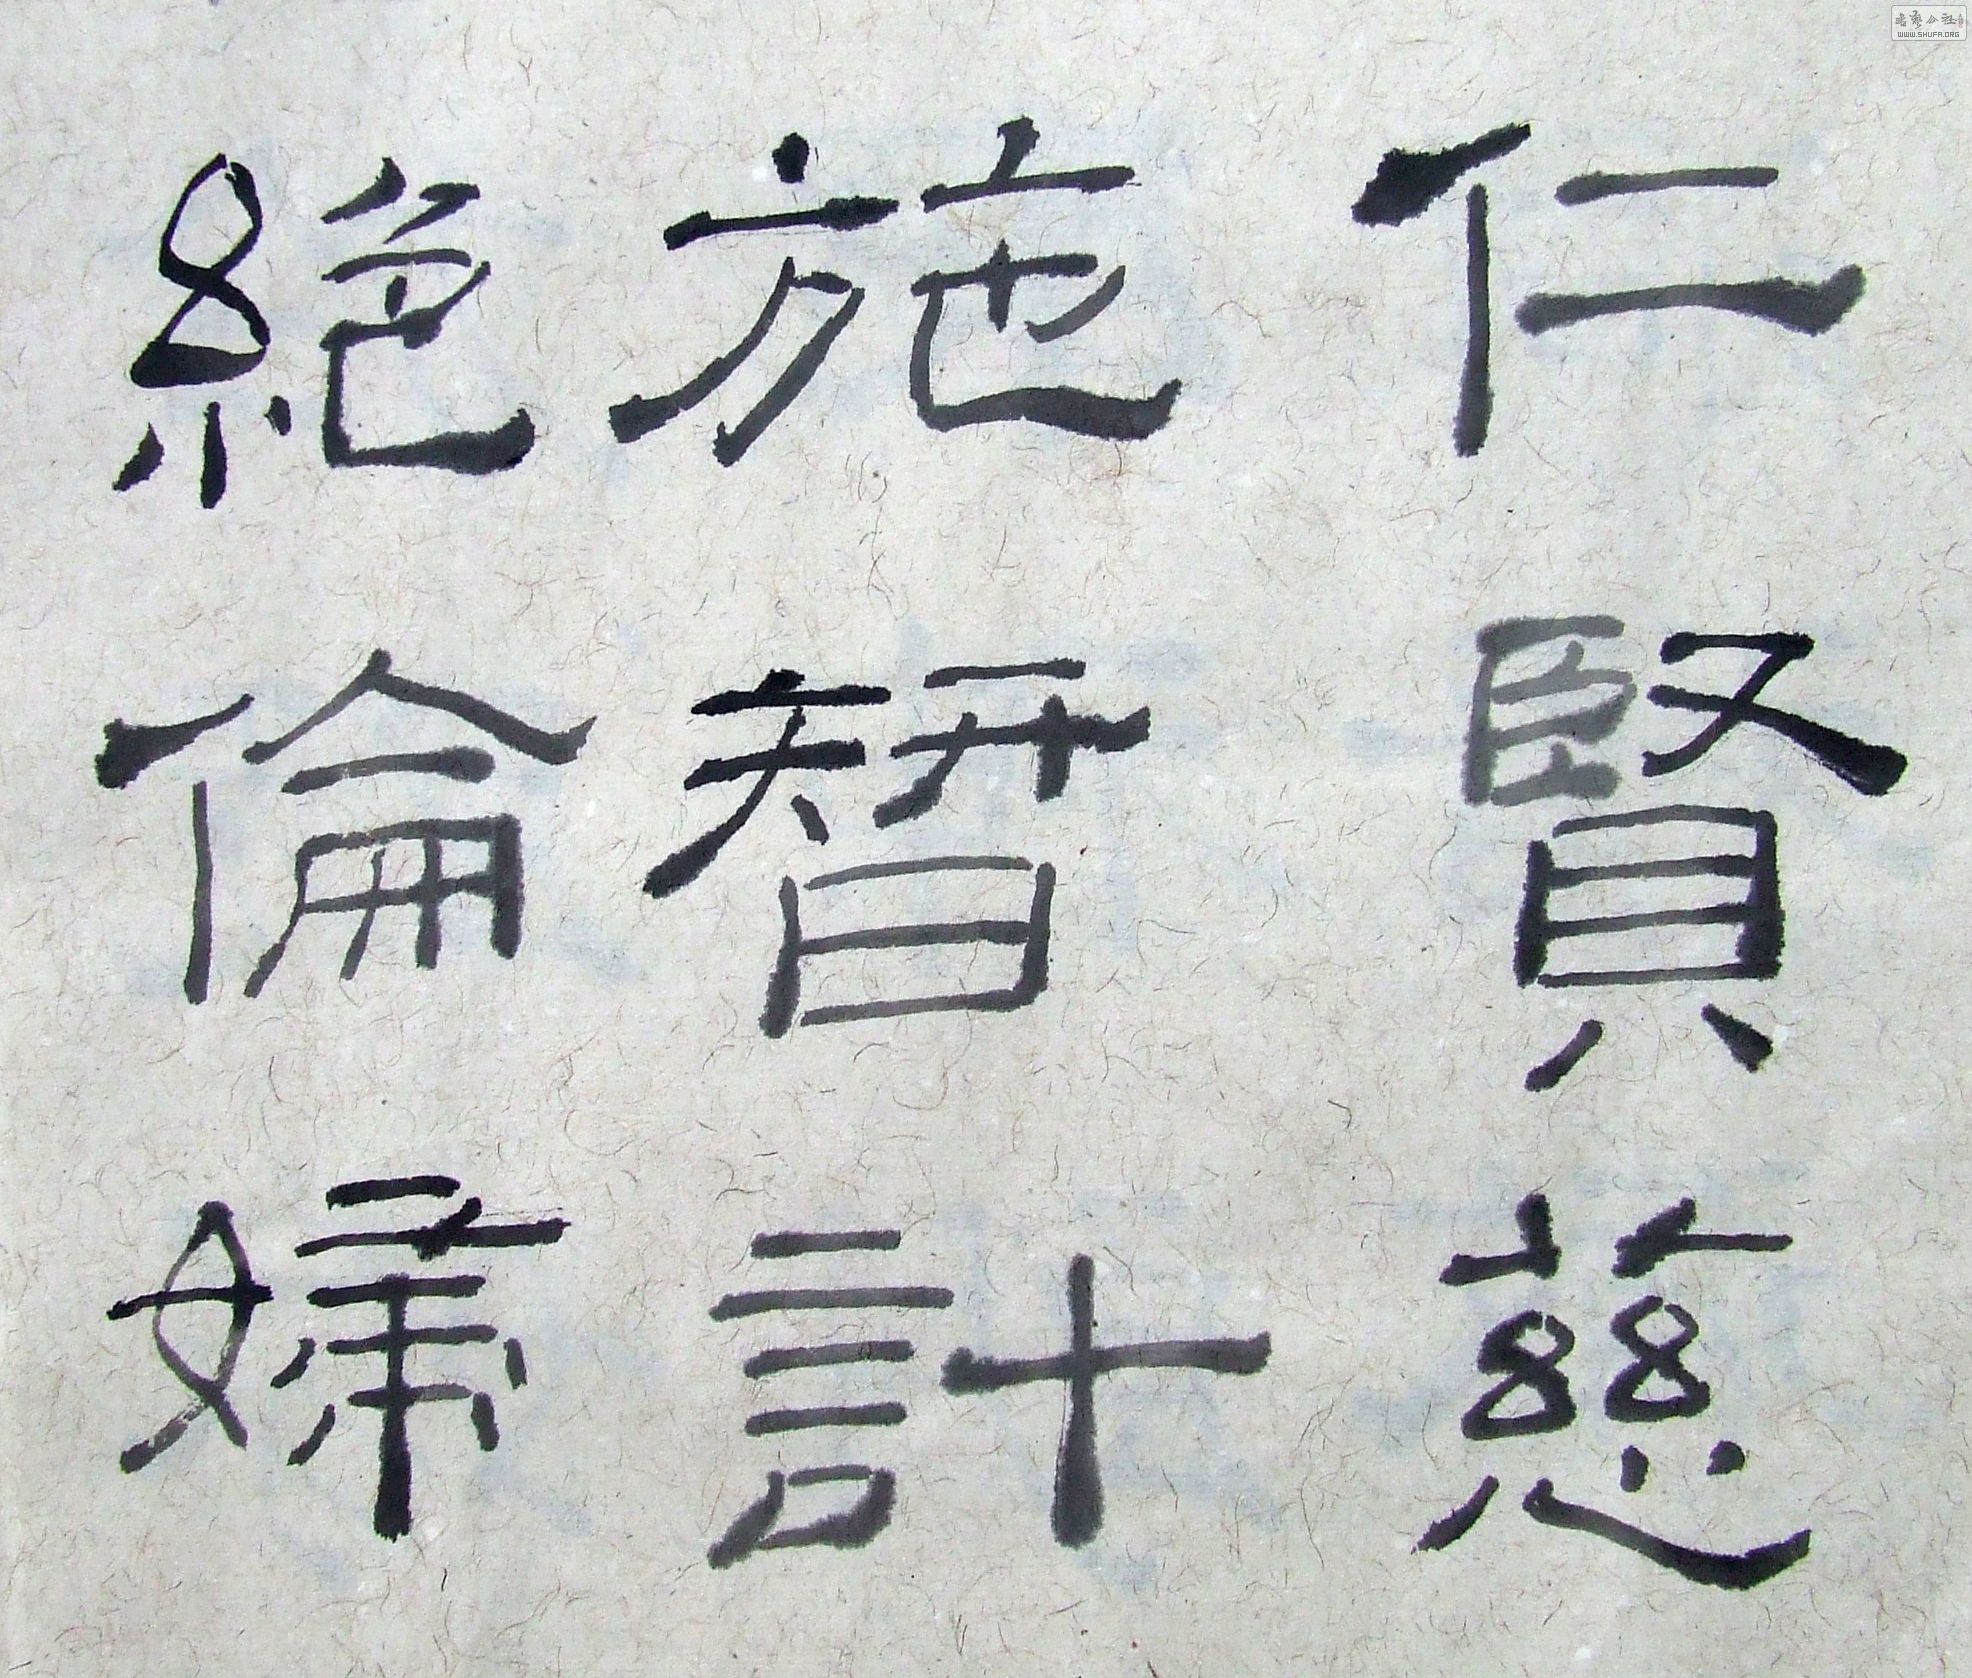 仁賢慈
施智計
絕倫婦
書藝公社
WWW.SHUFA.ORG